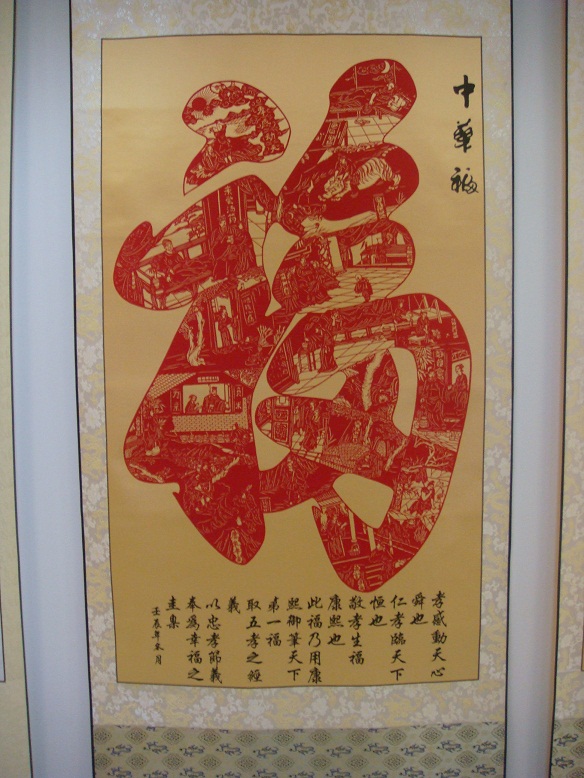 中華福
福
孝感動天心
舜也
仁孝臨天下
恒也
敬孝生福
康熙也
此福乃用康
熙御筆天下
弟一福
取五孝之經
義
以忠孝節義
奉為幸福之
圭臬
壬辰年冬月